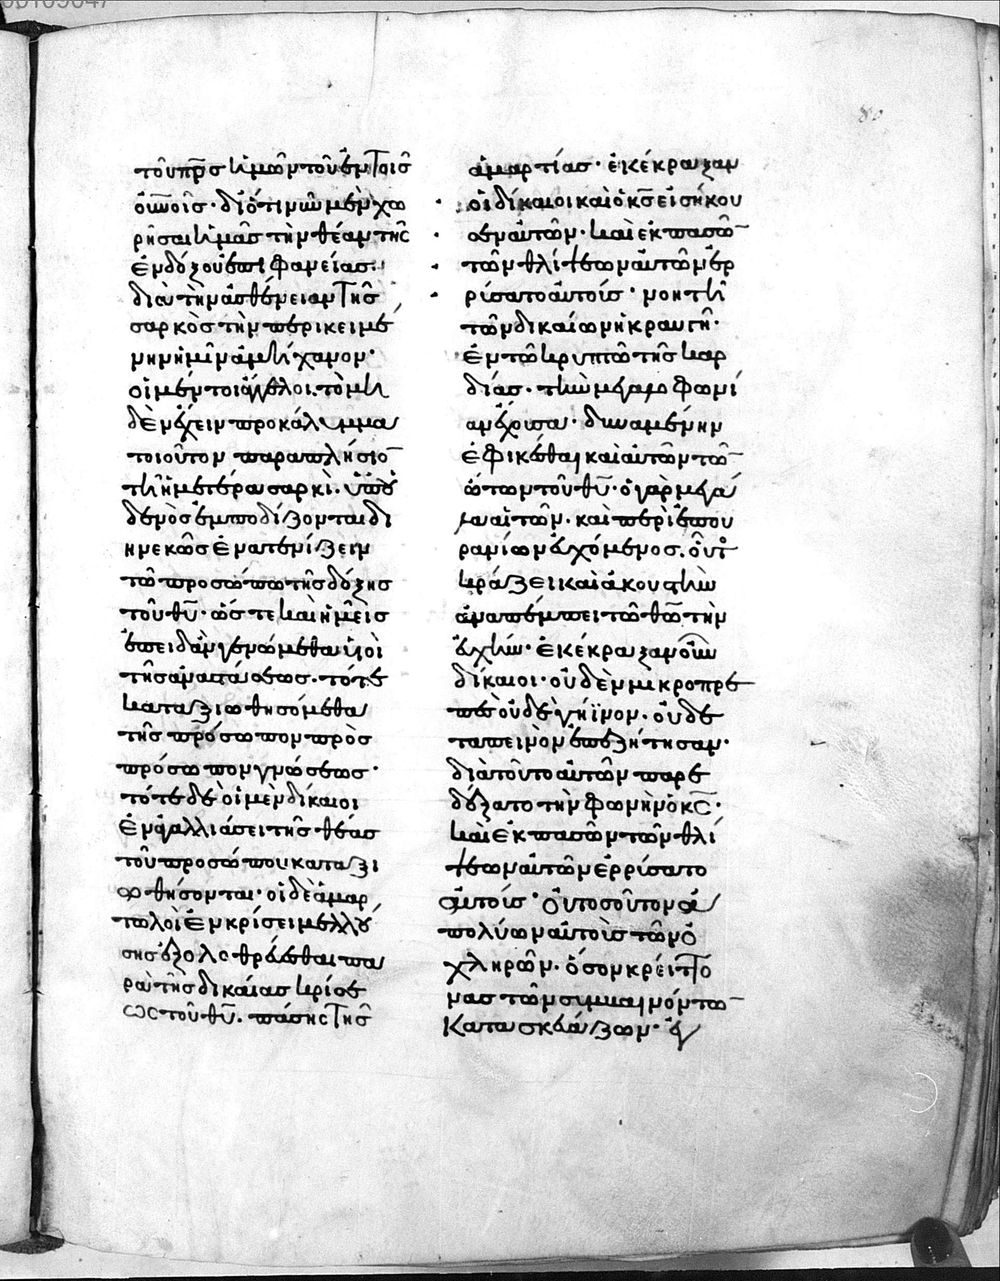 80
τοῦ πρ̅ς ἡμῶν τοῦ ἐν τοῖς
οὐνοῖς· διότι νῦν μὲν χω
ρῆσαι ἡμᾶς τὴν θέαν τῆς
ἐνδόξου ἐπιφανείας·
διὰ τὴν ἀσθένειαν τῆς
σαρκὸς τὴν περικειμέ
νην ἡμῖν ἀμήχανον·
οἱ μέντοι ἄγγελοι. τὸ μη
δὲν ἔχειν προκάλυμμα
τοιοῦτον παραπλήσιο̅
τῆ ἡμετέρα σαρκὶ. ὑπ' οὐ
δενὸς ἐμποδίζονται δι
ηνεκῶς ἐνατενίζειν
τῶ προσώπω τῆς δόξης
τοῦ θῦ· ὥστε καὶ ἡμεῖς
ἐπειδὰν γενώμεθα υἱοὶ
τῆς ἀναστάσεως. τότε
καταξιωθησόμεθα
τῆς πρόσωπον πρὸς
πρόσωπον γνώσεως·
τότε δὲ οἱ μὲν δίκαιοι
ἐν ἀγαλλιάσει τῆς θέας
τοῦ προσώπου καταξι
ωθήσονται· οἱ δὲ ἁμαρ
τωλοὶ ἐν κρίσει μελλού
σης ἐξολοθρεύεσθαι πα
ρὰ τῆς δικαίας κρίσε
ως τοῦ θῦ. πάσης τῆς
ἁμαρτίας· ἐκέκραξαν
οἱ δίκαιοι καὶ ὁ κ̅ς εἰσήκου
σεν αὐτῶν· καὶ ἐκ πασῶ̅
τῶν θλίψεων αὐτῶν ἐρ
ρίσατο αὐτούς· νοητὴ
τῶν δικαίων ἡ κραυγὴ·
ἐν τῶ κρυπτῶ τῆς καρ
δίας. τὴν μεγαλοφωνί
αν ἔχουσα· δυναμένην
ἐφικέσθαι καὶ αὐτῶν τῶ̅
ὤτων τοῦ θῦ· ὁ γὰρ μεγά
λα αἰτῶν. καὶ περὶ ἐπου
ρανίων εὐχόμενος. οὗτ
κράζει καὶ ἀκουστὴν
ἀναπέμπει τῶ θῶ τὴν
εὐχήν· ἐκέκραξαν οὖν
δίκαιοι· οὐδὲν μικροπρε
πὲς οὐδὲ γήϊνον. οὐδὲ
ταπεινὸν ἐπεζήτησαν·
διὰ τοῦτο αὐτῶν παρε
δέξατο τὴν φωνὴν ὁ κ̅ς·
καὶ ἐκ πασῶν τῶν θλί
ψεων αὐτῶν ἐρρίσατο
αὐτούς· οὐ τοσοῦτον ἀ
πολύων αὐτοὺς τῶν ὀ
χληρῶν. ὅσον κρείττο
νας τῶν συμβαινόντω̅
κατασκευάζων·